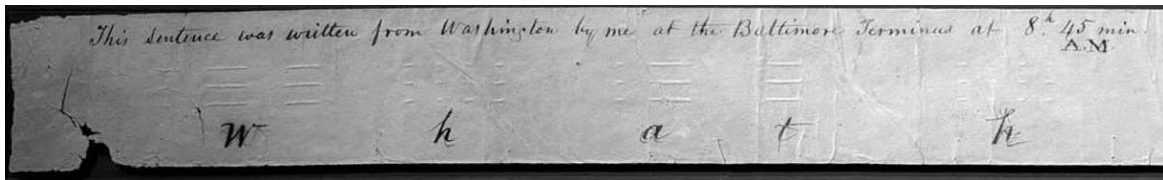 This Sentence was written from Washington by me at the Baltimore Terminus at 8.h 45 min.
A.M.
W h a t h